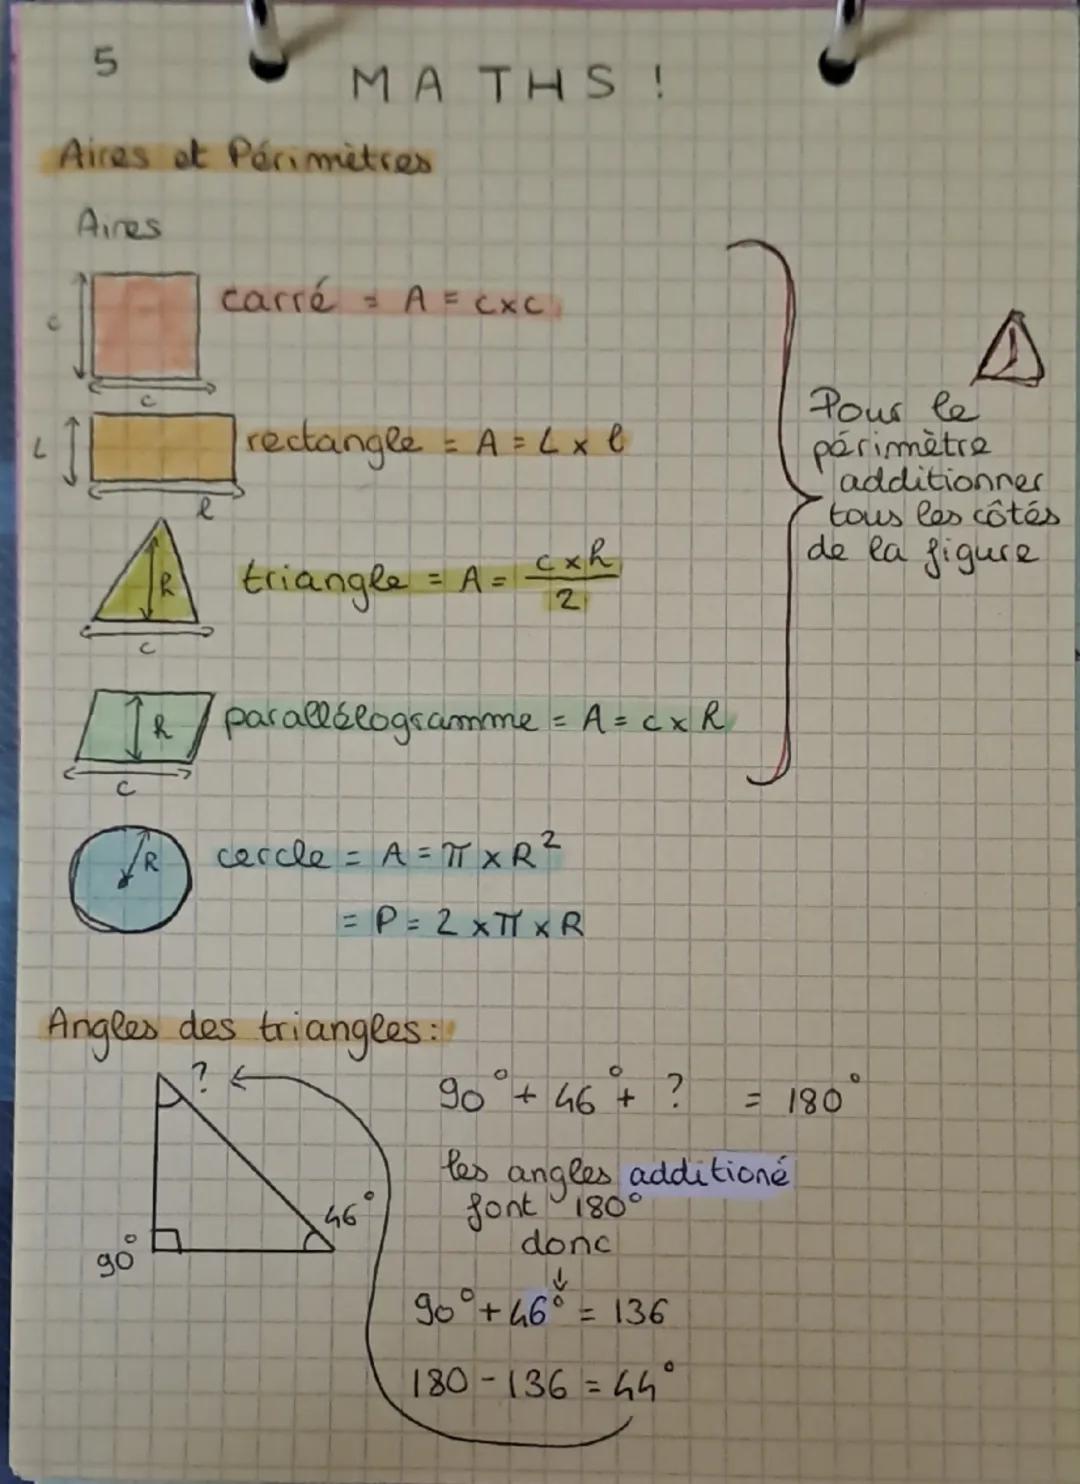 5
MATHS !
Aires et Périmètres
Aires
c
carré = A = c×c
c
L
rectangle = A = L × l
l
h
triangle = A = c×h
2
c
h
parallélogramme = A = c × h
c
Pour le
périmètre
additionner
tous les côtés
de la figure
R
cercle = A = π × R²
= P = 2 × π × R
Angles des triangles :
?
46°
90°
90° + 46° + ? = 180°
les angles additioné
font 180°
donc
90° + 46° = 136
180 - 136 = 44°